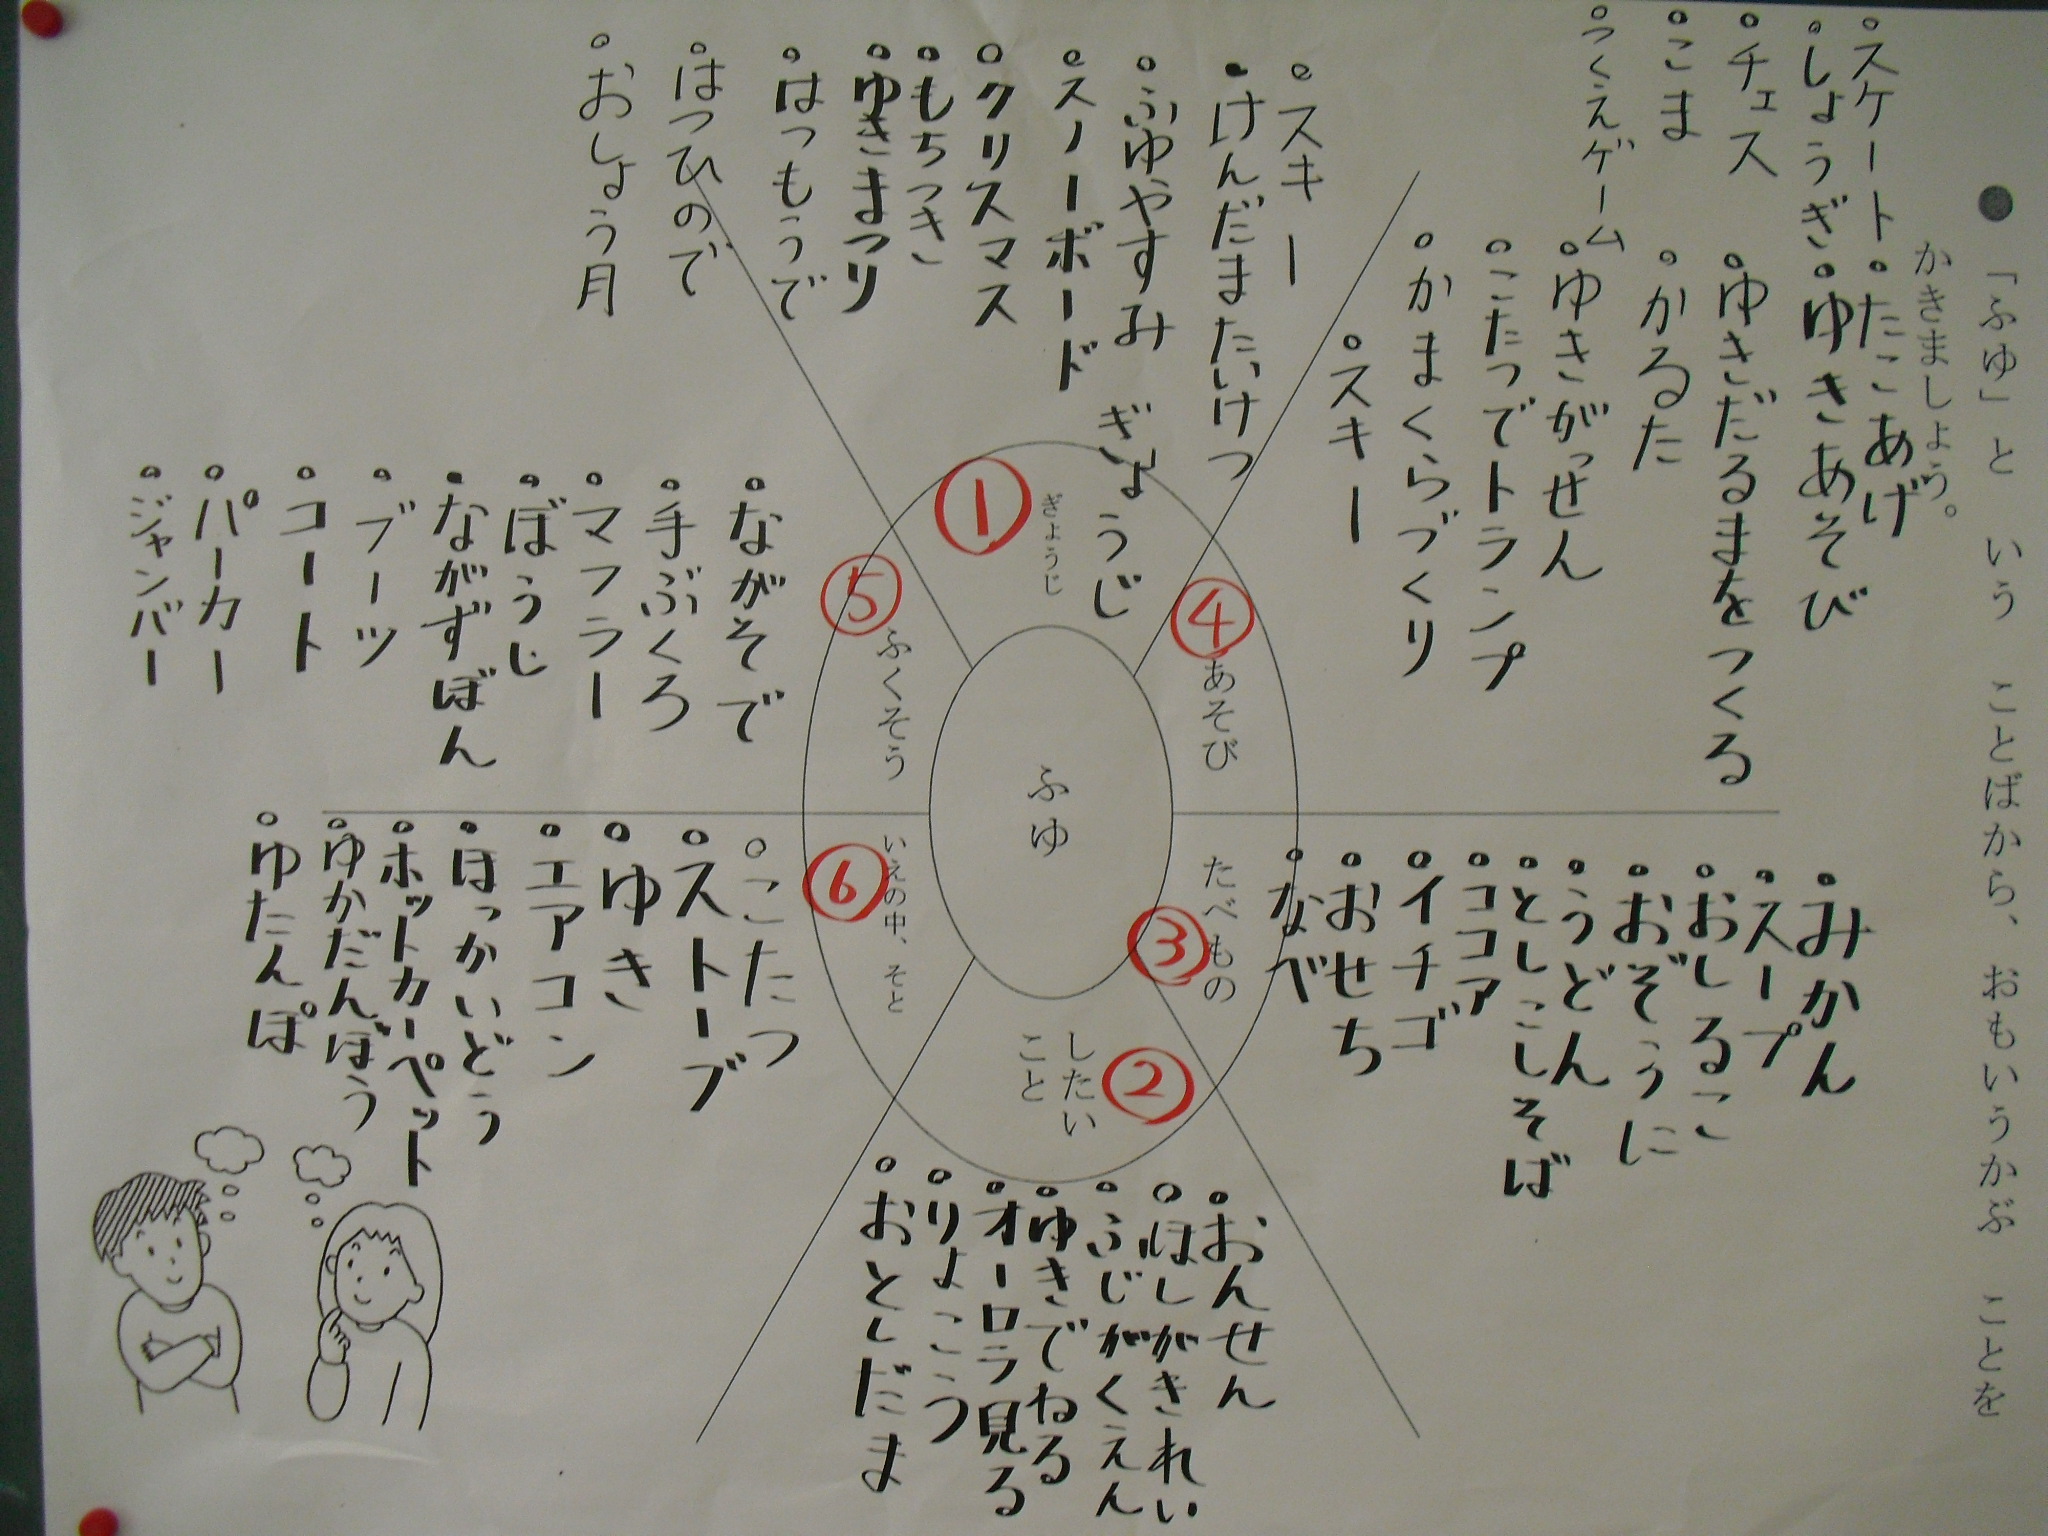 ●「ふゆ」と いう ことばから、おもいうかぶ ことを
かきましょう。
ふゆ
①
ぎょうじ
ぎょうじ
スキー
けんだまたいけつ
ふゆやすみ
スノーボード
クリスマス
もちつき
ゆきまつり
はつもうで
はつひので
おしょう月
②
したい
こと
おんせん
ほしがきれい
ふじがくえん
ゆきでねる
オーロラ見る
りょこう
おとしだま
③
たべもの
みかん
スープ
おしるこ
おぞうに
うどん
としこしそば
ココア
イチゴ
おせち
なべ
④
あそび
スケート
しょうぎ
チェス
こま
つくえゲーム
たこあげ
ゆきあそび
ゆきだるまをつくる
かるた
ゆきがっせん
こたつでトランプ
かまくらづくり
スキー
⑤
ふくそう
ながそで
手ぶくろ
マフラー
ぼうし
ながずぼん
ブーツ
コート
パーカー
ジャンバー
⑥
いえの中、そと
こたつ
ストーブ
ゆき
エアコン
ほっかいどう
ホットカーペット
ゆかだんぼう
ゆたんぽ